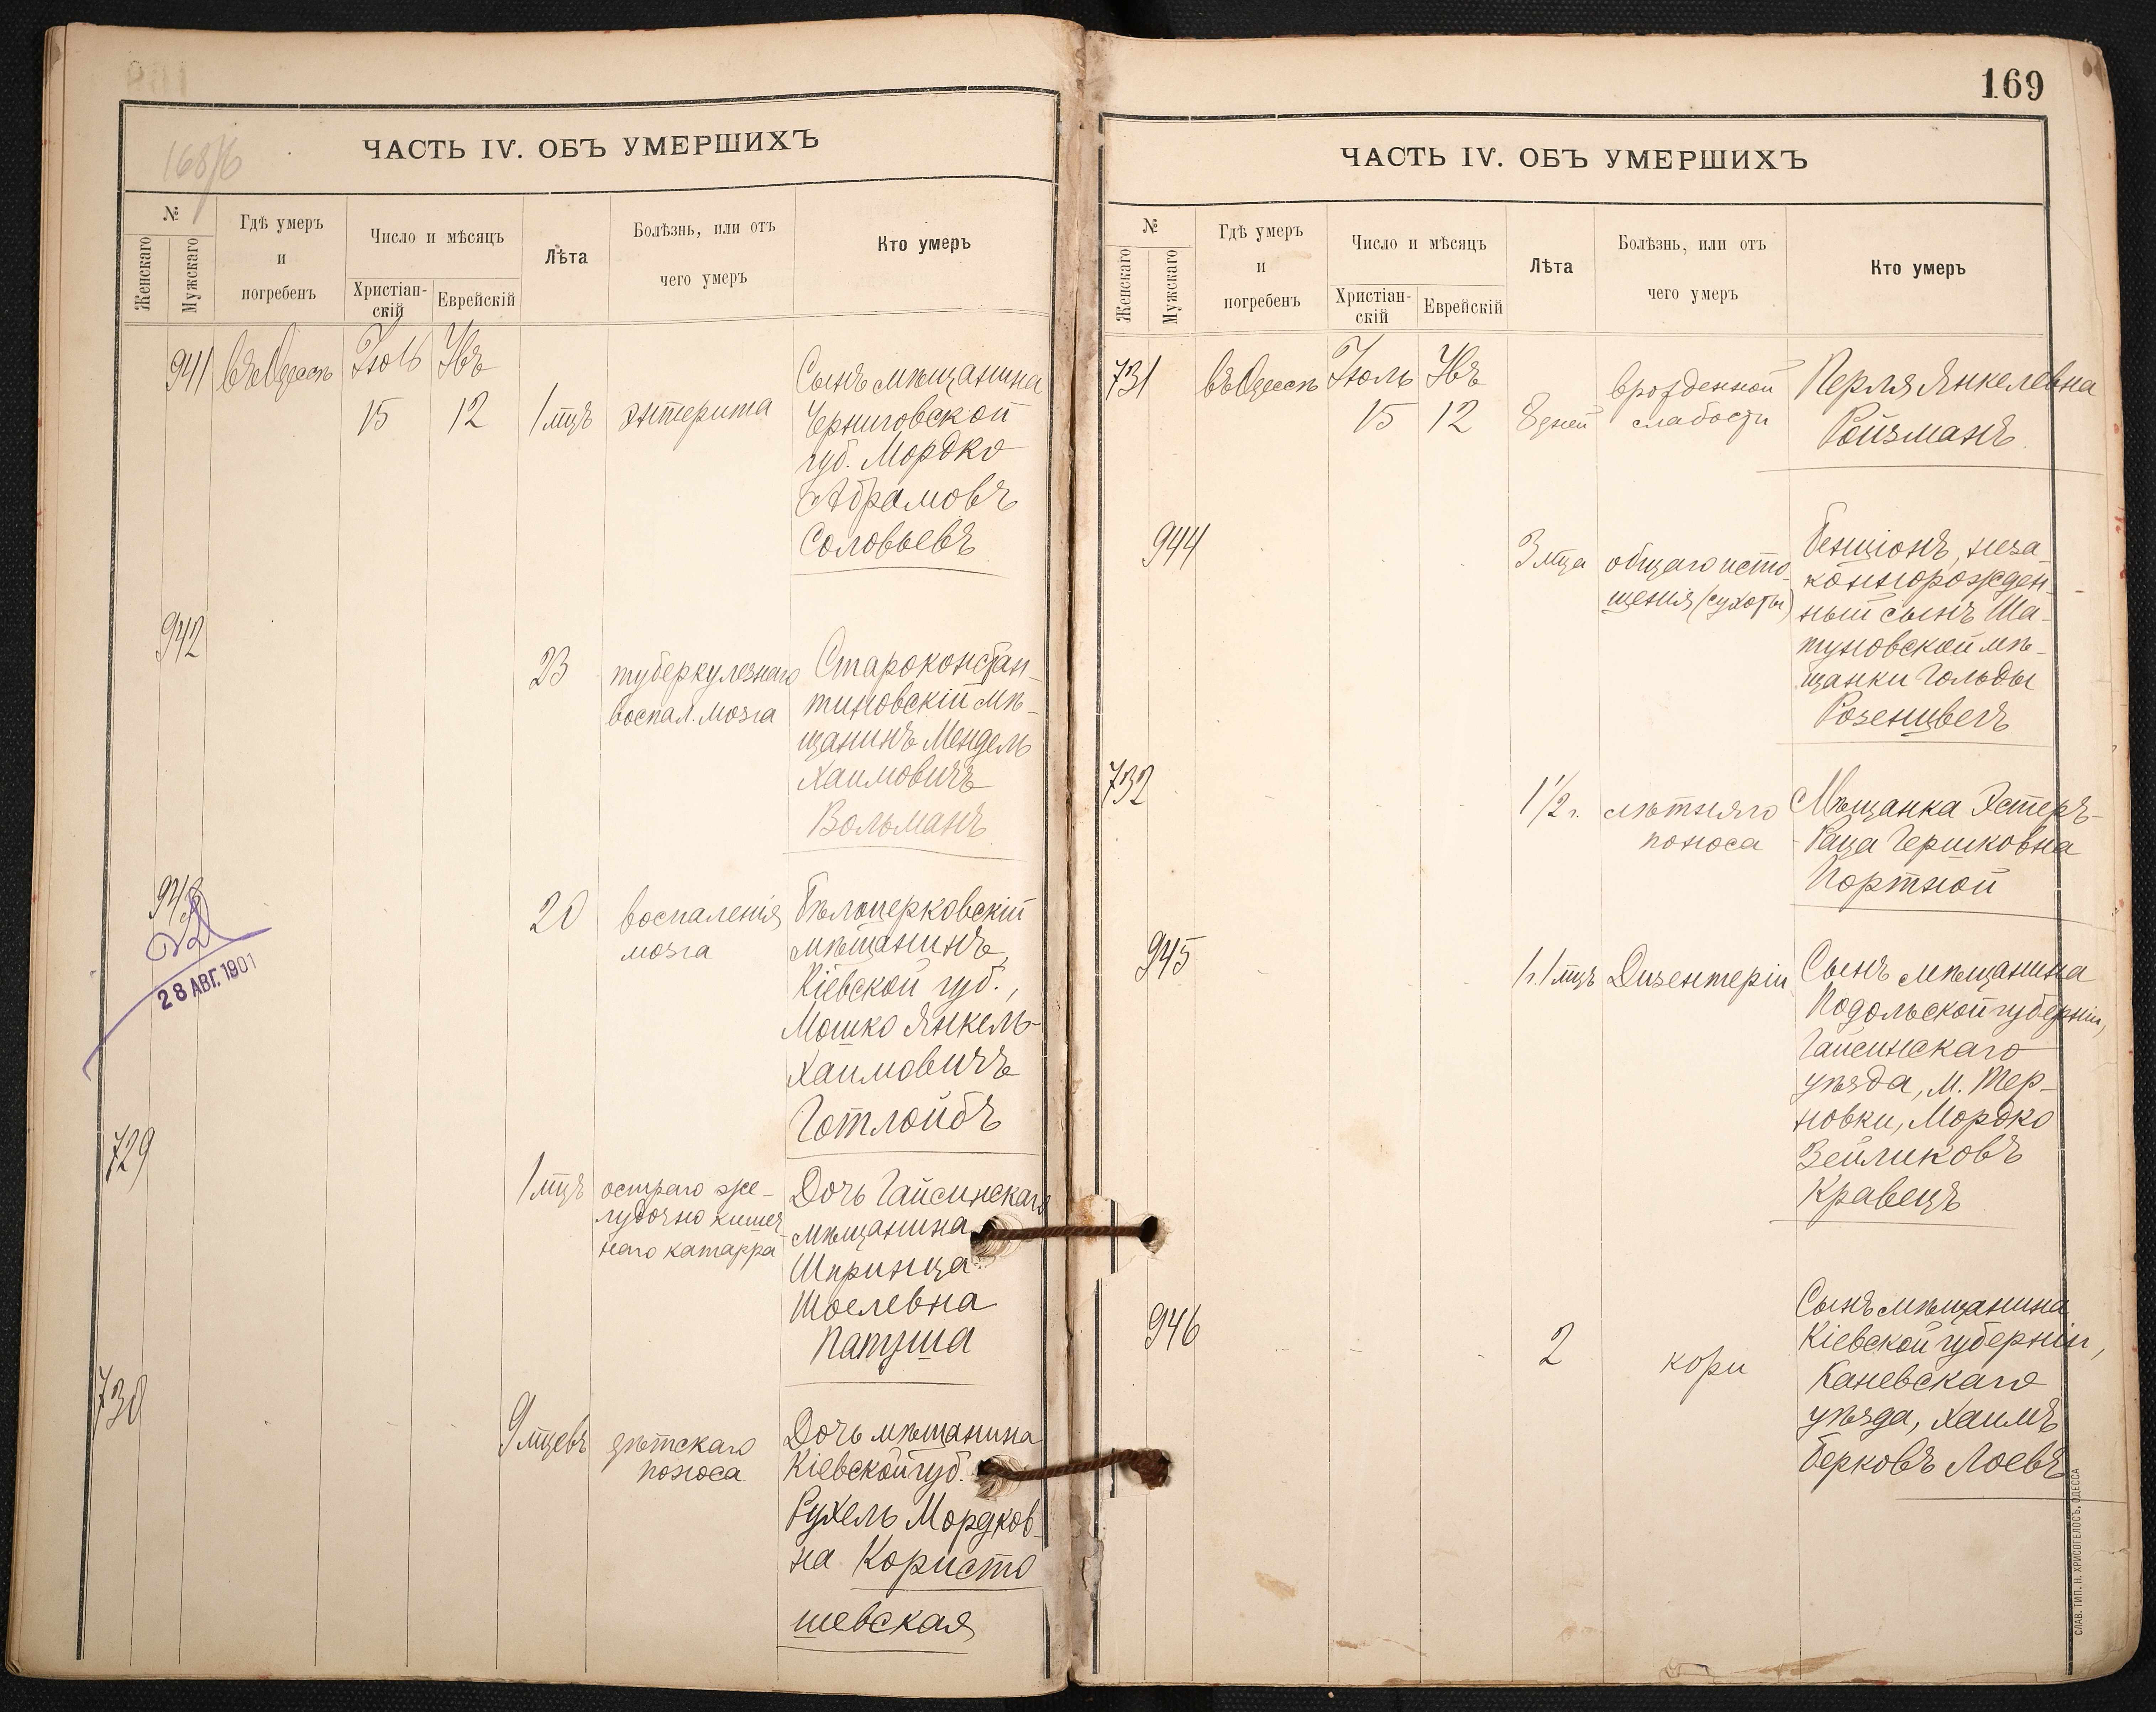 168/6
ЧАСТЬ IV. ОБЪ УМЕРШИХЪ
№
Женскаго
Мужскаго
Гдѣ умеръ
и
погребенъ
Число и мѣсяцъ
Христіан-
скій
Еврейскій
Лѣта
Болѣзнь, или отъ
чего умеръ
Кто умеръ
941
въ Одессѣ
Іюль
15
Явъ
12
1 мцъ
энтерита
Сынъ мѣщанина
Черниговской
губ. Мордко
Абрамовъ
Соловьевъ
942
23
туберкулезнаго
воспал. мозга
Староконстан-
тиновскій мѣ-
щанинъ Мендель
Хаимовичъ
Вольманъ
943
28 АВГ. 1901
20
воспаленія
мозга
Бѣлоцерковскій
мѣщанинъ,
Кіевской губ.,
Мошко Янкель-
Хаимовичъ
Готлойбъ
729
1 мцъ
остраго же-
лудочно кишеч
наго катарра
Дочь Гайсинскаго
мѣщанина
Шпринца
Шоелевна
Папуша
730
9 мцевъ
дѣтскаго
поноса
Дочь мѣщанина
Кіевской губ.
Рухель Мордков-
на Користо
шевская
169
ЧАСТЬ IV. ОБЪ УМЕРШИХЪ
№
Женскаго
Мужскаго
Гдѣ умеръ
и
погребенъ
Число и мѣсяцъ
Христіан-
скій
Еврейскій
Лѣта
Болѣзнь, или отъ
чего умеръ
Кто умеръ
731
въ Одессѣ
Іюль
15
Явъ
12
8 дней
врожденной
слабости
Перля Янкелевна
Ройзманъ
944
3 мца
общаго исто-
щенія (сухоты)
Бенціонъ, неза
коннорожден-
ный сынъ Ша-
туновской мѣ-
щанки Гольды
Розенцвегъ
732
1 1/2 г.
лѣтняго
поноса
Мѣщанка Эстеръ-
Раца Гершковна
Портной
945
1 г. 1 мцъ
Дизентеріи
Сынъ мѣщанина
Подольской губерніи,
Гайсинскаго
уѣзда, м. Тер-
новки, Мордко
Зейликовъ
Кравецъ
946
2
кори
Сынъ мѣщанина
Кіевской губерніи,
Каневскаго
уѣзда, Хаимъ
Берковъ Лоевъ
СЛАВ. ТИП. Н. ХРИСОГЕЛОСЪ, ОДЕССА